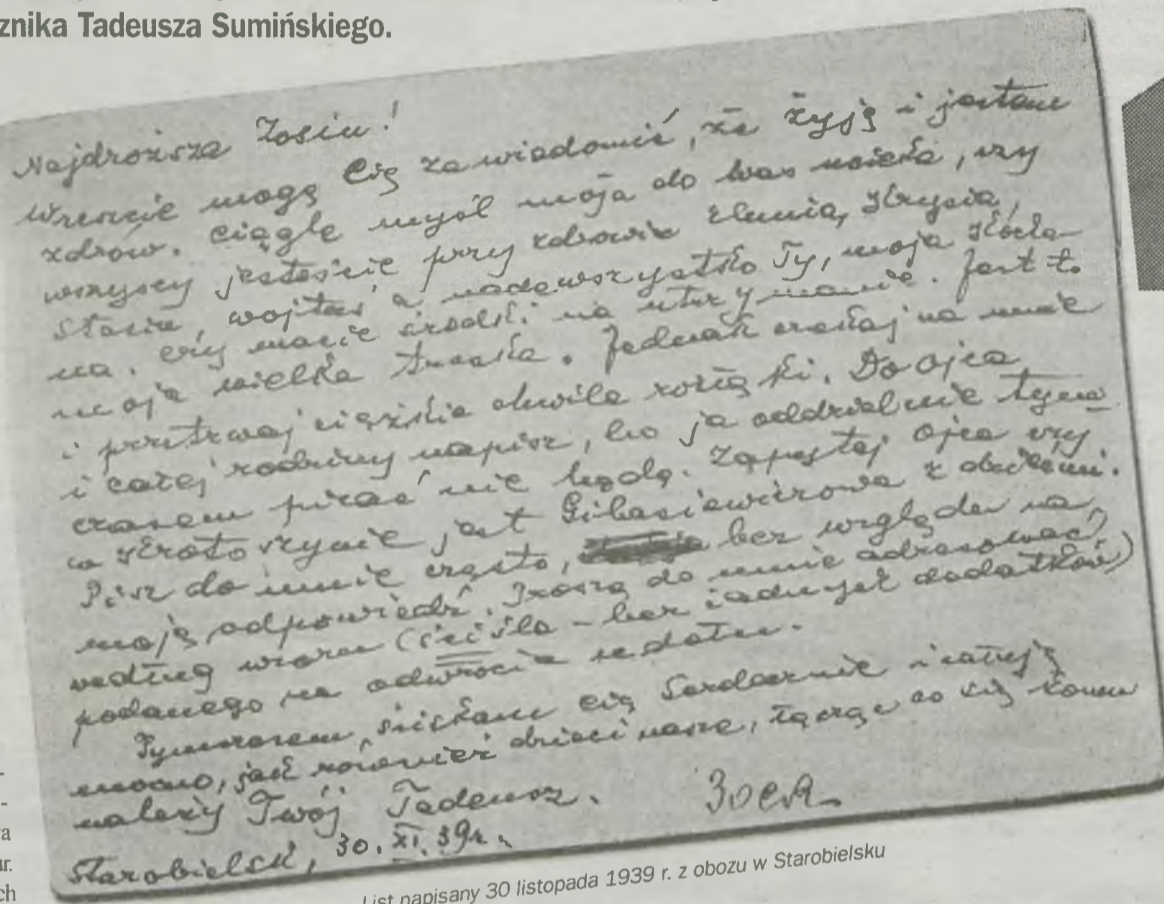 znika Tadeusza Sumińskiego.
Najdroższa Zosiu!
Wreszcie mogę Cię zawiadomić, że żyję i jestem
zdrów. Ciągle myśl moja do Was ucieka, czy
wszyscy jesteście przy zdrowiu
Stasiu, Wojtuś a nadewszystko Ty, moja Kocha-
na, czy macie środki na utrzymanie. Jest to
moja wielka troska. Jednak czekaj na mnie
i przetrwaj ciężkie chwile rozłąki. Do ojca
i całej rodziny napisz, bo ja oddzielnie tym-
czasem pisać nie będę. Zapytaj ojca czy
w Krotoszynie jest Gibasiewiczowa z dziećmi.
Pisz do mnie często, bez względu na
moją odpowiedź. Proszę do mnie adresować
według wzoru (ściśle - bez żadnych dodatków)
podanego na odwrocie
Tymczasem, ściskam Cię serdecznie i całuję
mocno, jak również dzieci nasze, łączę co się komu
należy Twój Tadeusz.
Starobielsk, 30.XI.39r.
List napisany 30 listopada 1939 r. z obozu w Starobielsku